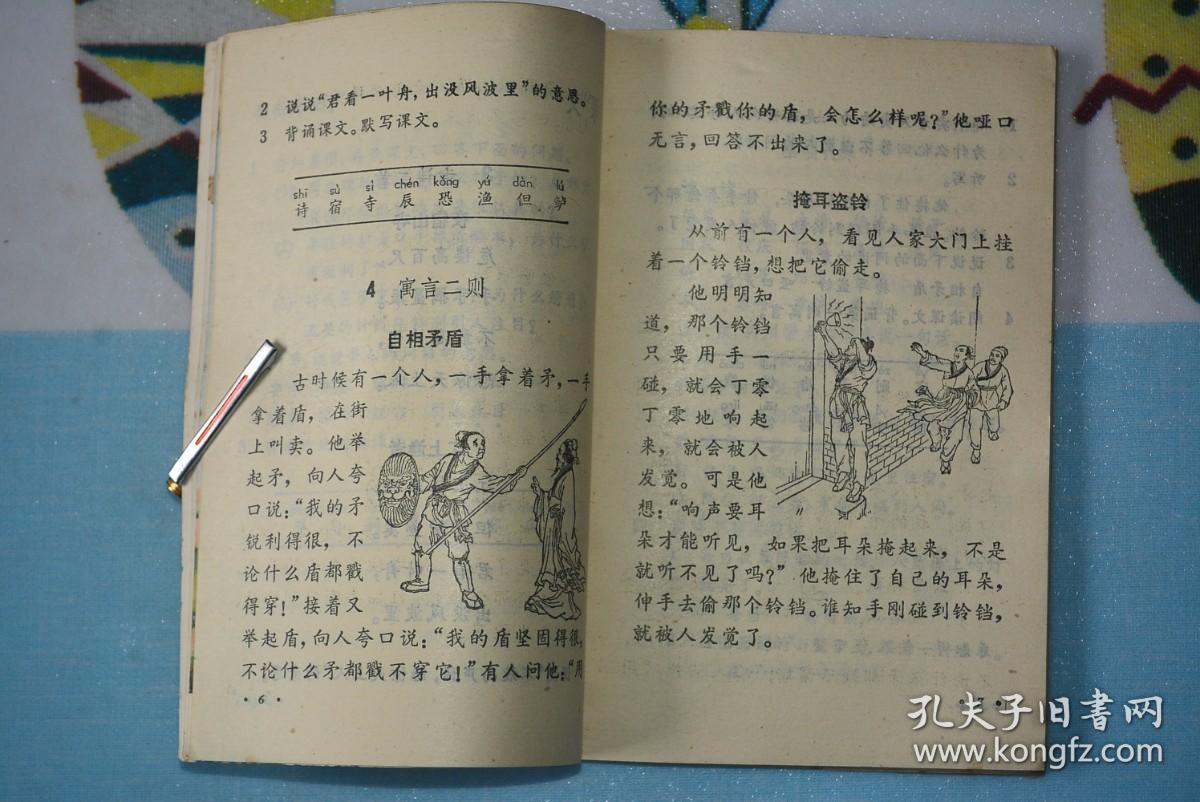 2 说说“君看一叶舟，出没风波里”的意思。
3 背诵课文。默写课文。
shī sù sì chén kǒng yú dàn lú
诗 宿 寺 辰 恐 渔 但 鲈
4 寓言二则
自相矛盾
古时候有一个人，一手拿着矛，一手
拿着盾，在街
上叫卖。他举
起矛，向人夸
口说：“我的矛
锐利得很，不
论什么盾都戳
得穿！”接着又
举起盾，向人夸口说：“我的盾坚固得很，
不论什么矛都戳不穿它！”有人问他：“用
·6·
你的矛戳你的盾，会怎么样呢？”他哑口
无言，回答不出来了。
掩耳盗铃
从前有一个人，看见人家大门上挂
着一个铃铛，想把它偷走。
他明明知
道，那个铃铛
只要用手一
碰，就会丁零
丁零地响起
来，就会被人
发觉。可是他
想：“响声要耳
朵才能听见，如果把耳朵掩起来，不是
就听不见了吗？”他掩住了自己的耳朵，
伸手去偷那个铃铛。谁知手刚碰到铃铛，
就被人发觉了。
·7·
孔夫子旧书网
www.kongfz.com